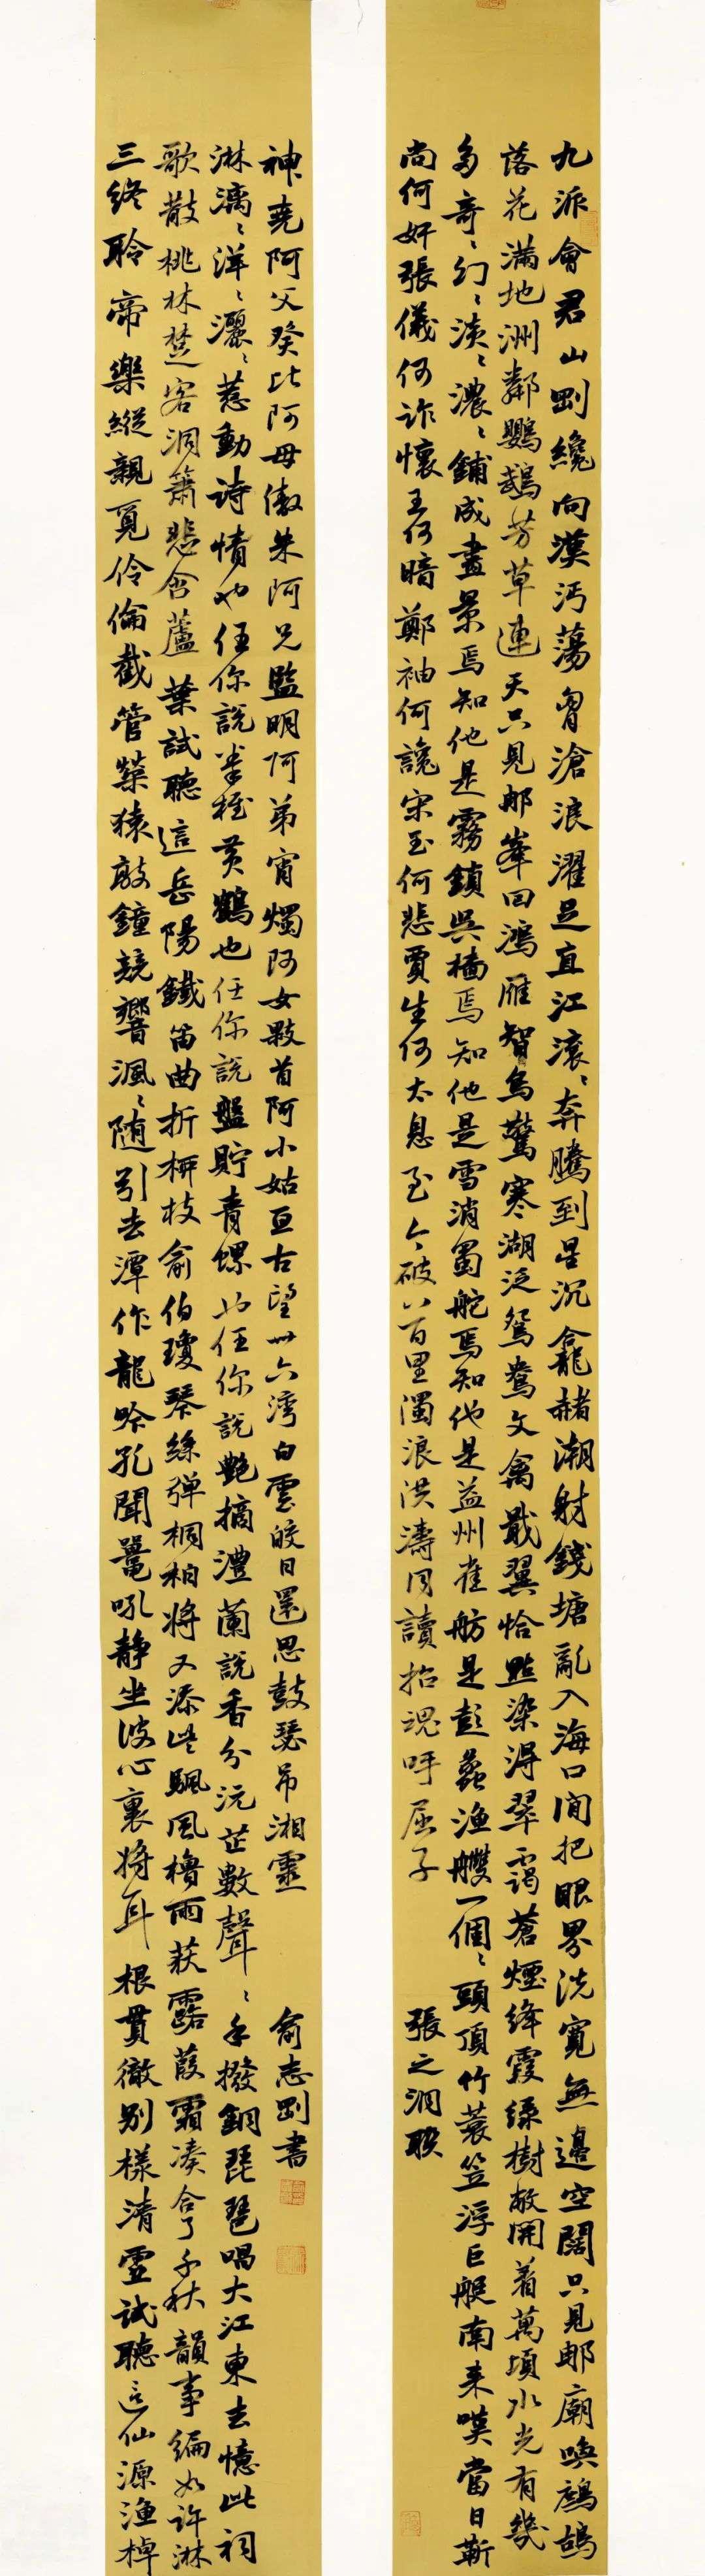 九派會君山剛纔向漢沔蕩胷滄浪濯足直江滚〻奔騰到星沉龕赭潮射錢塘亂入海口間把眼界洗寬無邊空闊只見那廟喚鷓鴣
落花滿地洲鄰鸚鵡芳草連天只見那峯回鴻雁智鳥驚寒湖泛鴛鴦文禽戢翼恰點染得翠靄蒼煙絳霞綠樹敞開着萬頃水光有幾
多奇〻幻〻淡〻濃〻鋪成畫景焉知他是霧鎖吳檣焉知他是雪消蜀舵焉知他是益州雀舫是彭蠡漁艭一個〻頭頂竹蓑笠浮巨艇南来嘆當日靳
尚何奸張儀何詐懷王何暗鄭袖何讒宋玉何悲賈生何太息至今破八百里濁浪洪濤同讀招魂呼屈子
張之洞聯
三終聆帝樂縱親覓伶倫截管藥猿敲鐘競響渢〻随引去潭作龍吟孔聞鼉吼静坐波心裏将耳根貫徹別樣清虛試聽這仙源漁棹
歌散桃林楚客洞簫悲含蘆葉試聽這岳陽鐵笛曲折柳枝俞伯瓊琴絲弹桐柏将又添些颿風檣雨荻露葭霜凑合了千秋韻事編如許淋
淋漓〻洋〻灑〻惹動詩情也任你說拳椎黄鶴也任你說盤貯青螺也任你說艷摘澧蘭說香分沅芷數聲〻手撥銅琵琶唱大江東去憶此祠
神堯阿父癸比阿母傲朱阿兄監明阿弟宵燭阿女敤首阿小姑亘古望卅六湾白雲皎日還思鼓瑟吊湘靈
俞志剛書